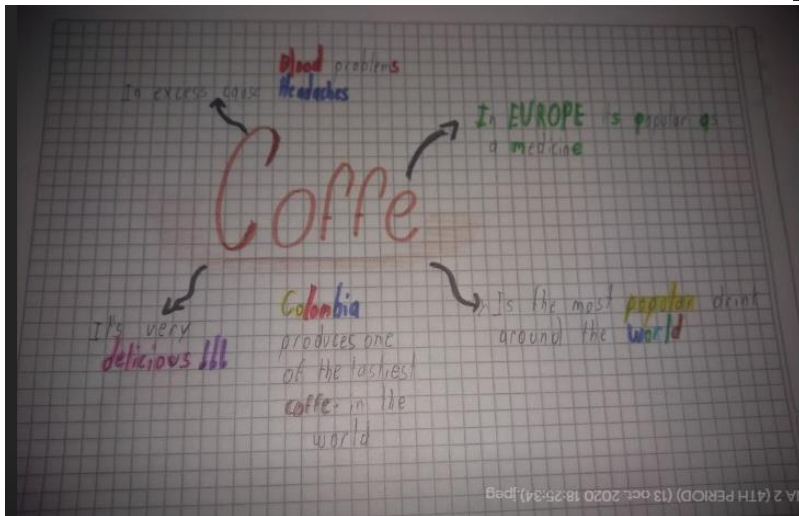 Blood problems
In excess cause Headaches
In EUROPE is popular as
a medicine
Coffe
It's very
delicious !!!
Colombia
produces one
of the tastiest
coffe in the
world
Is the most popular drink
around the world
IA 2 (4TH PERIOD) (13 oct. 2020 18:25:34).jpeg